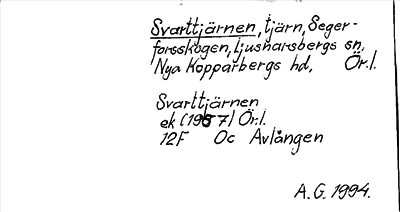 Svarttjärnen, tjärn, Seger-
forsskogen, Ljusnarsbergs sn,
Nya Kopparbergs hd, Ör.l.
Svarttjärnen
ek (1957) Ör.l.
12F Oc Avlången
A.G. 1994.